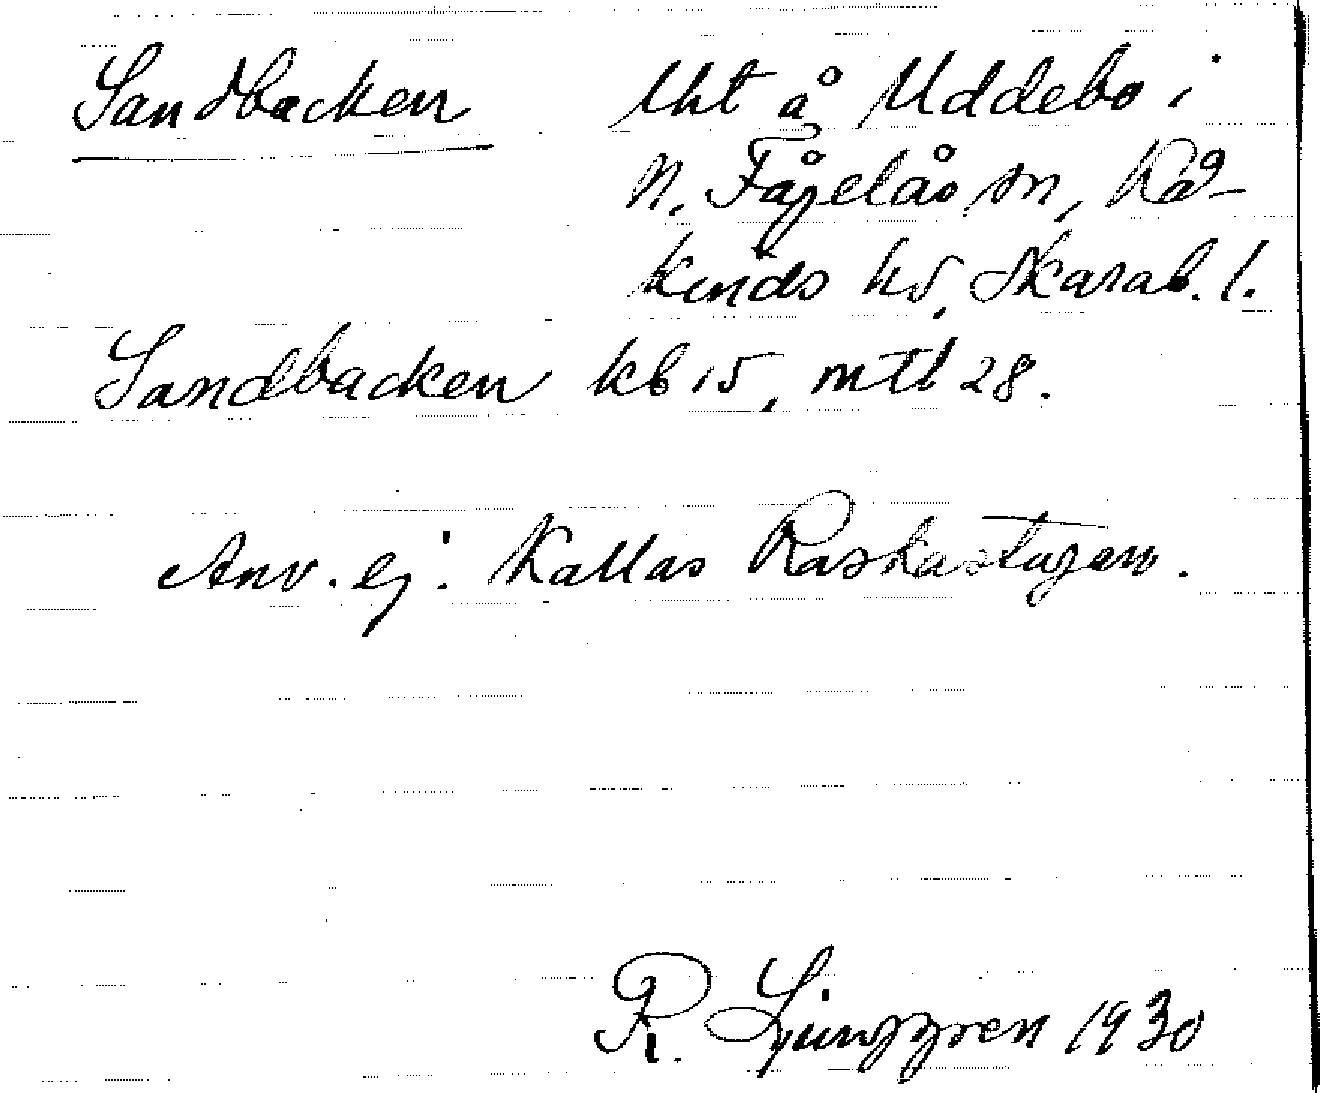 Sandbacken lht å Uddebo i
N. Fågelås sn, Kå-
kinds hd, Skarab. l.
Sandbacken kb 15, mtl 28.
Anv. ej. Kallas Raskastugan.
R. Ljunggren 1930